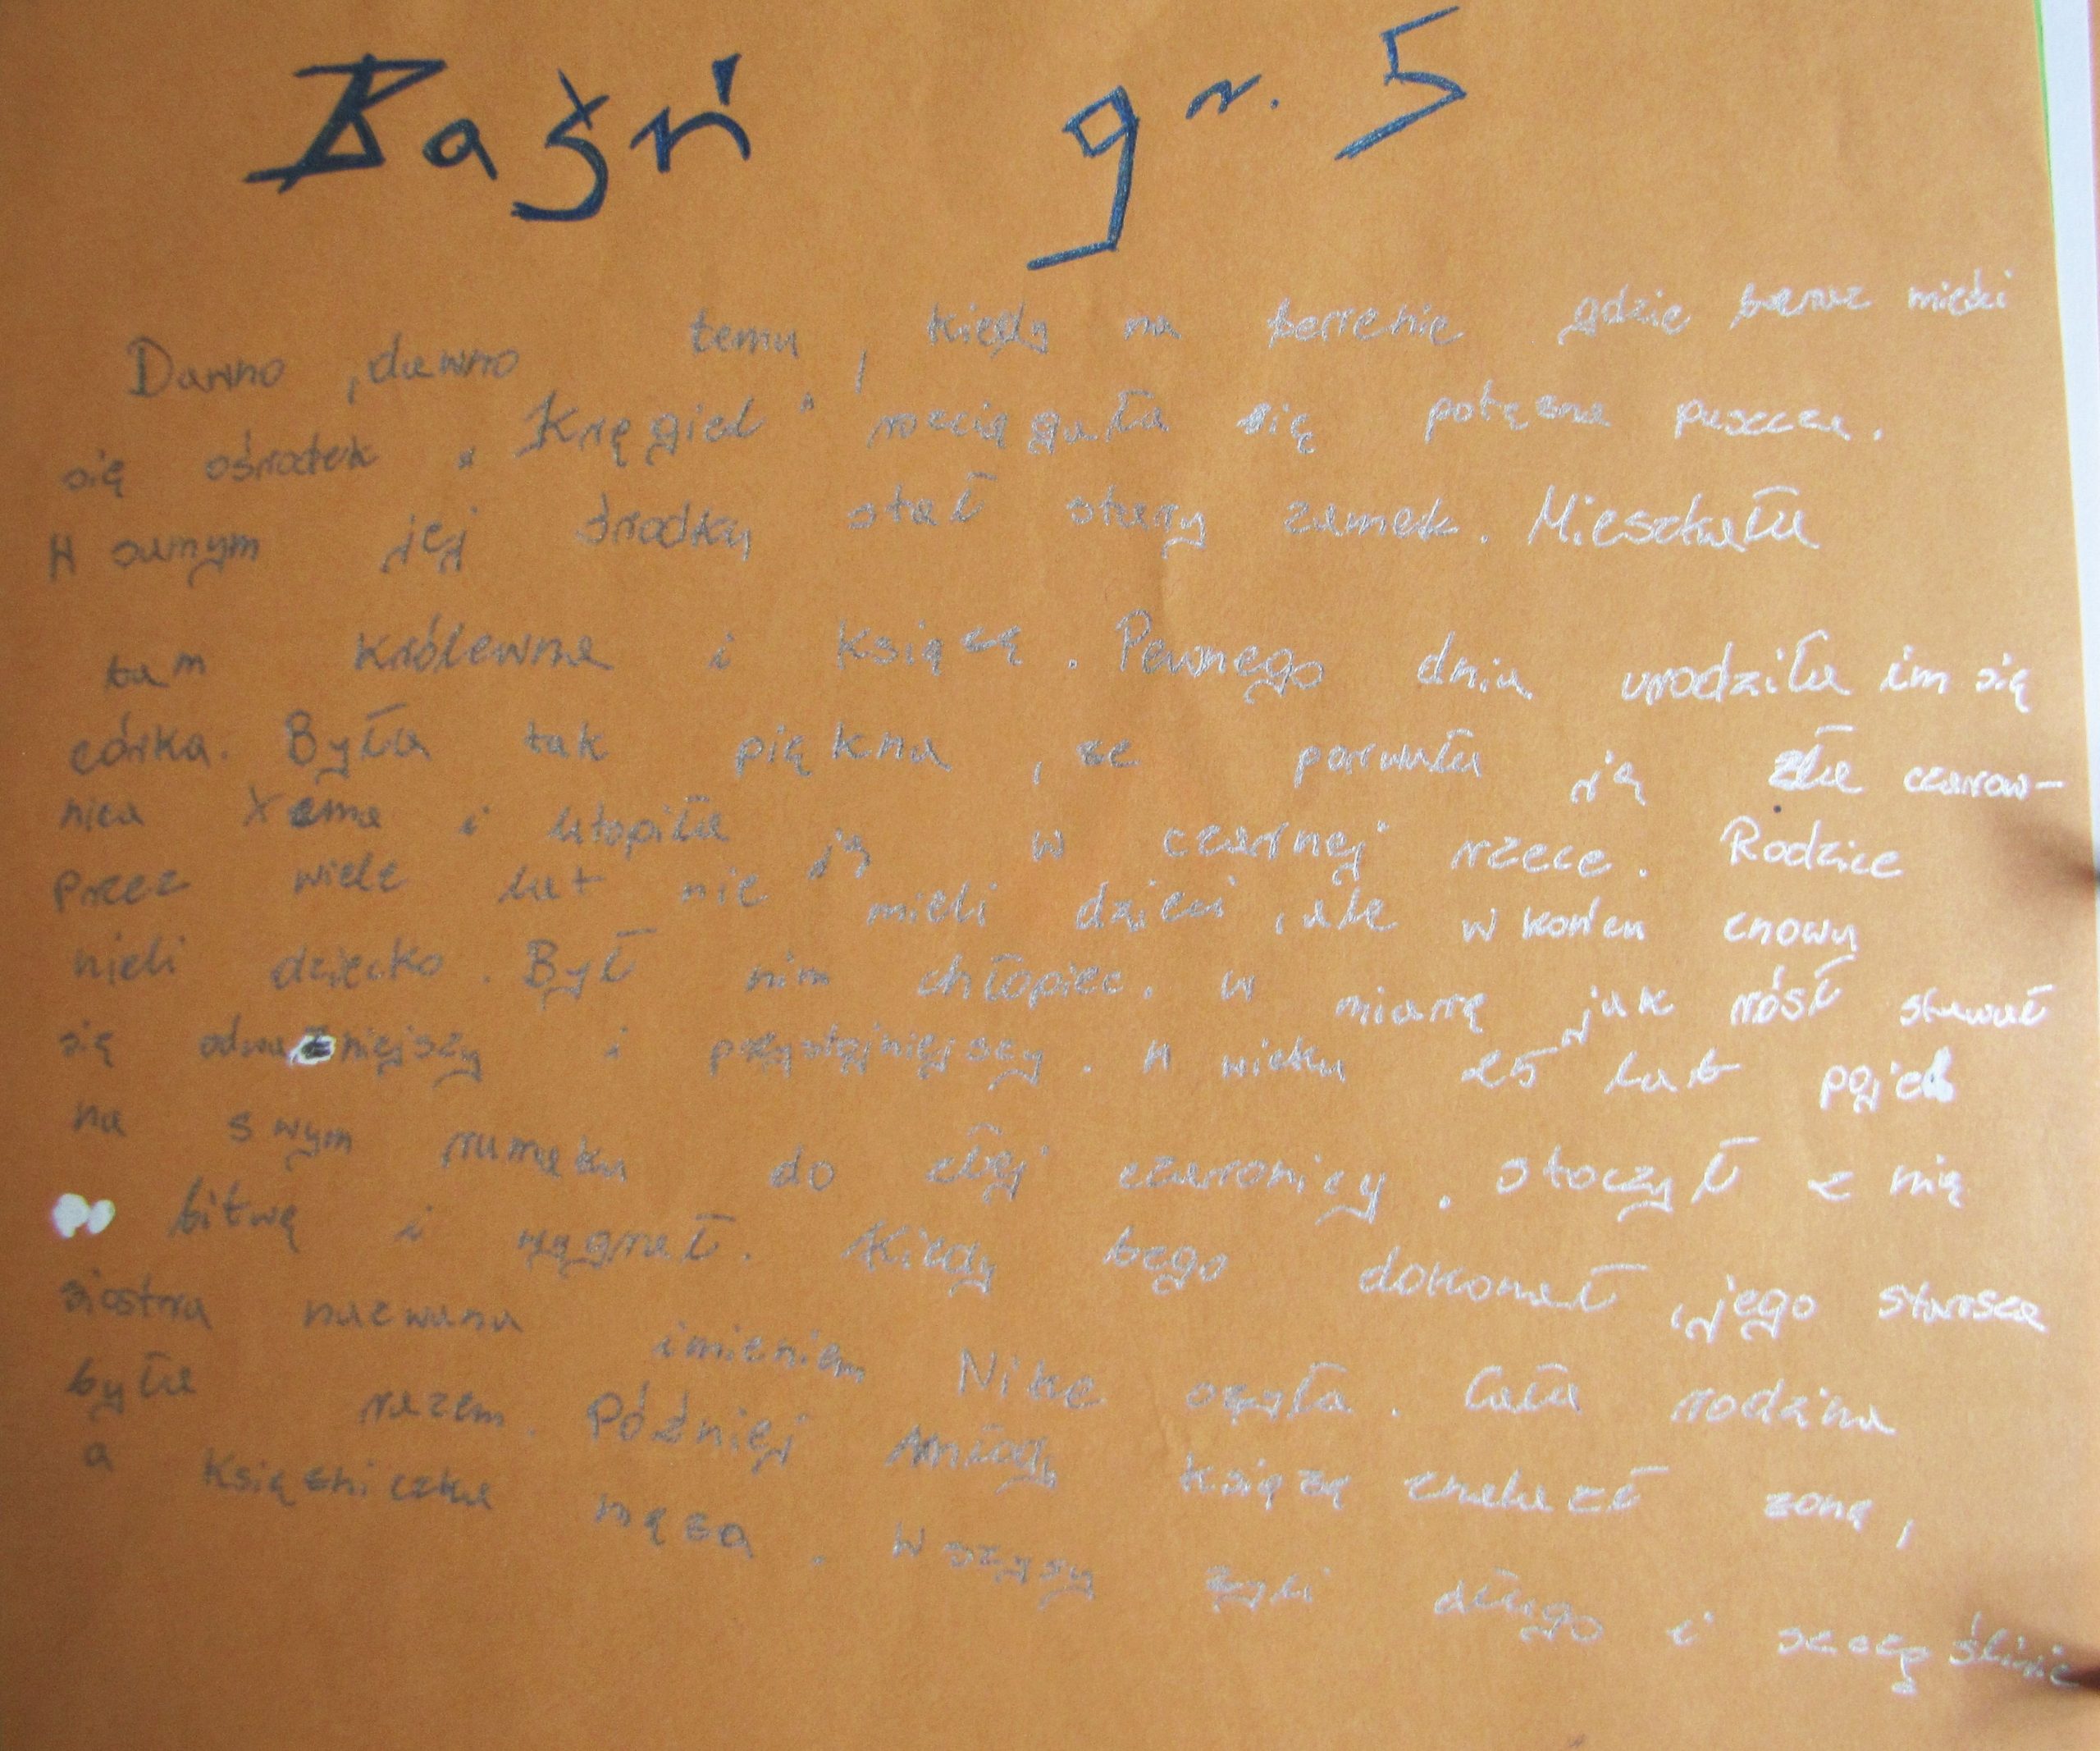 Baśń gr. 5
Dawno, dawno temu, kiedy na terrenie gdzie teraz mieści
się ośrodek "Kręgiel" rozciągała się potężna puszcza.
W samym jej środku stał stary zamek. Mieszkała
tam królewna i książę. Pewnego dnia urodziła im się
córka. Była tak piękna, że porwała ją zła czarow-
nica Xema i utopiła ją w czarnej rzece. Rodzice
przez wiele lat nie mieli dzieci, ale w końcu znowu
mieli dziecko. Był nim chłopiec. W miarę jak rósł stawał
się odważniejszy i przystojniejszy. W wieku 25 lat pojech
na swym rumaku do złej czaronicy. Stoczył z nią
bitwę i wygrał. Kiedy tego dokonał, jego starsza
siostra nazwana imieniem Nike ożyła. Cała rodzina
była razem. Później młody książę znalazł żonę,
a księżniczka męża. Wszysy żyli długo i szczęśliwie